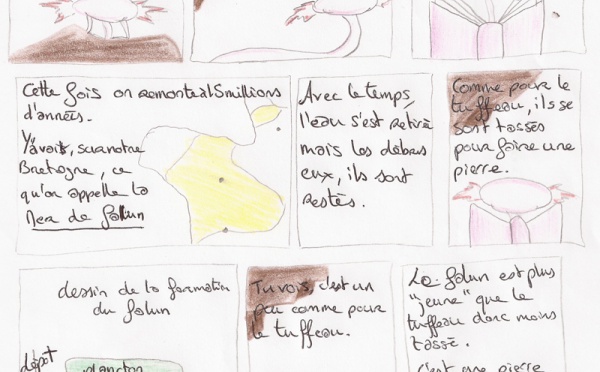 Cette fois on remonte à 15 millions
d'années.
Y'avait, sur notre
Bretagne, ce
qu'on appelle la
Mer de falun
Avec le temps,
l'eau s'est retiré
mais les débris
eux, ils sont
restés.
Comme pour le
tuffeau, ils se
sont tassés
pour faire une
pierre.
dessin de la formation
du falun
dépôt
plancton
Tu vois, c'est un
peu comme pour
le tuffeau.
Le falun est plus
"jeune" que le
tuffeau donc moins
tassé.
c'est une pierre